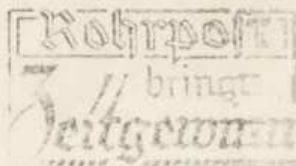 Rohrpost
bringt
Zeitgewinn